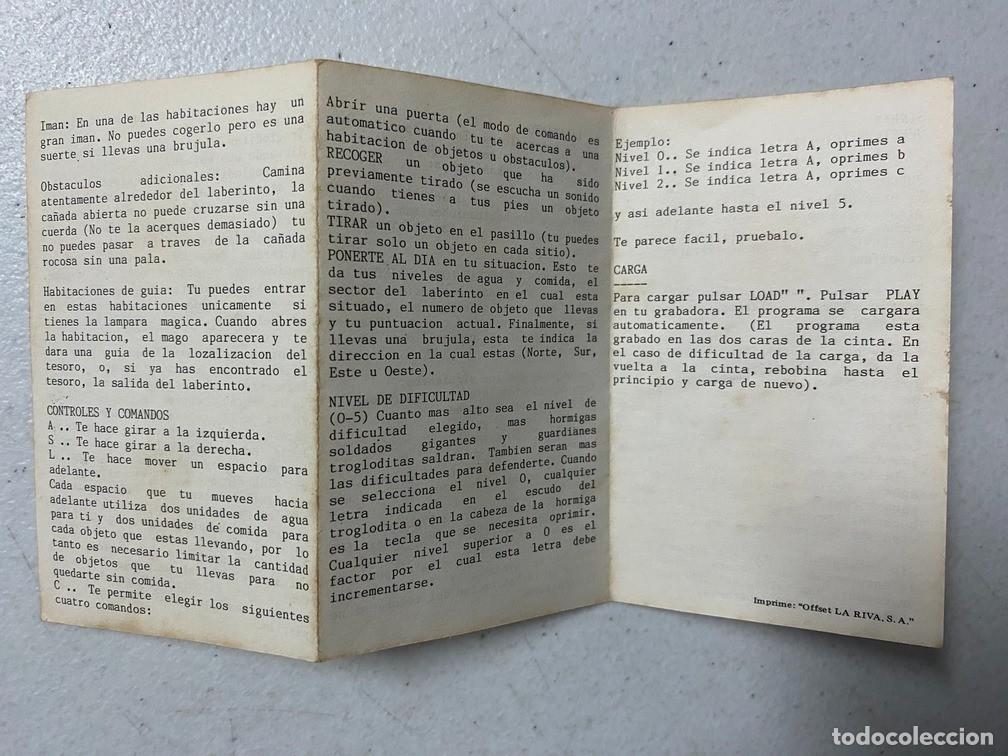 Iman: En una de las habitaciones hay un
gran iman. No puedes cogerlo pero es una
suerte si llevas una brujula.
Obstaculos adicionales: Camina
atentamente alrededor del laberinto, la
cañada abierta no puede cruzarse sin una
cuerda (No te la acerques demasiado) tu
no puedes pasar a traves de la cañada
rocosa sin una pala.
Habitaciones de guia: Tu puedes entrar
en estas habitaciones unicamente si
tienes la lampara magica. Cuando abres
la habitacion, el mago aparecera y te
dara una guia de la lozalizacion del
tesoro, o, si ya has encontrado el
tesoro, la salida del laberinto.
CONTROLES Y COMANDOS
A .. Te hace girar a la izquierda.
S .. Te hace girar a la derecha.
L .. Te hace mover un espacio para
adelante.
Cada espacio que tu mueves hacia
adelante utiliza dos unidades de agua
para ti y dos unidades de comida para
cada objeto que estas llevando, por lo
tanto es necesario limitar la cantidad
de objetos que tu llevas para no
quedarte sin comida.
C .. Te permite elegir los siguientes
cuatro comandos:
Abrir una puerta (el modo de comando es
automatico cuando tu te acercas a una
habitacion de objetos u obstaculos).
RECOGER un objeto que ha sido
previamente tirado (se escucha un sonido
cuando tienes a tus pies un objeto
tirado).
TIRAR un objeto en el pasillo (tu puedes
tirar solo un objeto en cada sitio).
PONERTE AL DIA en tu situacion. Esto te
da tus niveles de agua y comida, el
sector del laberinto en el cual esta
situado, el numero de objeto que llevas
y tu puntuacion actual. Finalmente, si
llevas una brujula, esta te indica la
direccion en la cual estas (Norte, Sur,
Este u Oeste).
NIVEL DE DIFICULTAD
(0-5) Cuanto mas alto sea el nivel de
dificultad elegido, mas hormigas
soldados gigantes y guardianes
trogloditas saldran. Tambien seran mas
las dificultades para defenderte. Cuando
se selecciona el nivel 0, cualquier
letra indicada en el escudo del
troglodita o en la cabeza de la hormiga
es la tecla que se necesita oprimir.
Cualquier nivel superior a 0 es el
factor por el cual esta letra debe
incrementarse.
Ejemplo:
Nivel 0.. Se indica letra A, oprimes a
Nivel 1.. Se indica letra A, oprimes b
Nivel 2.. Se indica letra A, oprimes c
y asi adelante hasta el nivel 5.
Te parece facil, pruebalo.
CARGA
-----
Para cargar pulsar LOAD" ". Pulsar PLAY
en tu grabadora. El programa se cargara
automaticamente. (El programa esta
grabado en las dos caras de la cinta. En
el caso de dificultad de la carga, da la
vuelta a la cinta, rebobina hasta el
principio y carga de nuevo).
Imprime: "Offset LA RIVA, S.A."
todocoleccion